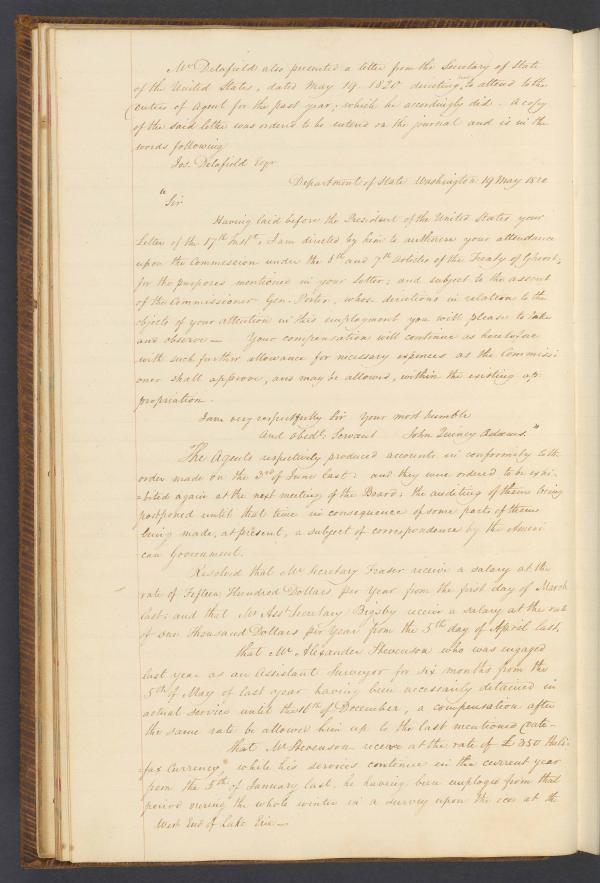 Mr Delafield also presented a letter from the Secretary of State
of the United States, dated May 19. 1820 directing him to attend to the
duties of Agent for the past year; which he accordingly did. A copy
of the said letter was ordered to be entered on the journal and is in the
words following
Jos. Delafield Esqr
Department of State Washington 19 May 1820
"Sir
Having laid before the President of the United States your
Letter of the 17th Inst., I am directed by him to authorise your attendance
upon the Commission under the 6th and 7th Articles of the Treaty of Ghent,
for the purposes mentioned in your letter; and subject to the assent
of the Commissioner Gen. Porter, whose directions in relation to the
objects of your attention in this employment you will please to take
and observe — Your compensation will continue as heretofore
with such further allowance for necessary expences as the Commissi-
oner shall approve, and may be allowed, within the existing ap-
propriation.
I am very respectfully Sir Your most humble
And Obedt. Servant John Quincy Adams."
The Agents respectively produced accounts in conformity to the
order made on the 3rd of June last: and they were ordered to be exhi-
=bited again at the next meeting of the Board; the auditing of them being
postponed until that time in consequence of some parts of them
being made, at present, a subject of correspondence by the Ameri
can Government.
Resolved that Mr Secretary Fraser receive a salary at the
rate of Fifteen Hundred Dollars per Year from the first day of March
last; and that Mr Asst Secretary Bigsby receive a salary at the rate
of One Thousand Dollars per Year from the 5th day of April last.
That Mr Alexander Stevenson who was engaged
last year as an Assistant Surveyor for six months from the
5th of May of last year having been necessarily detained in
actual service until the 16th of December, a compensation after
the same rate be allowed him up to the last mentioned date—
That Mr Stevenson receive at the rate of £350 Hali-
-fax Currency, while his services continue in the current year
from the 5th of January last, he having been employed from that
period during the whole winter in a survey upon the ice at the
West End of Lake Erie—